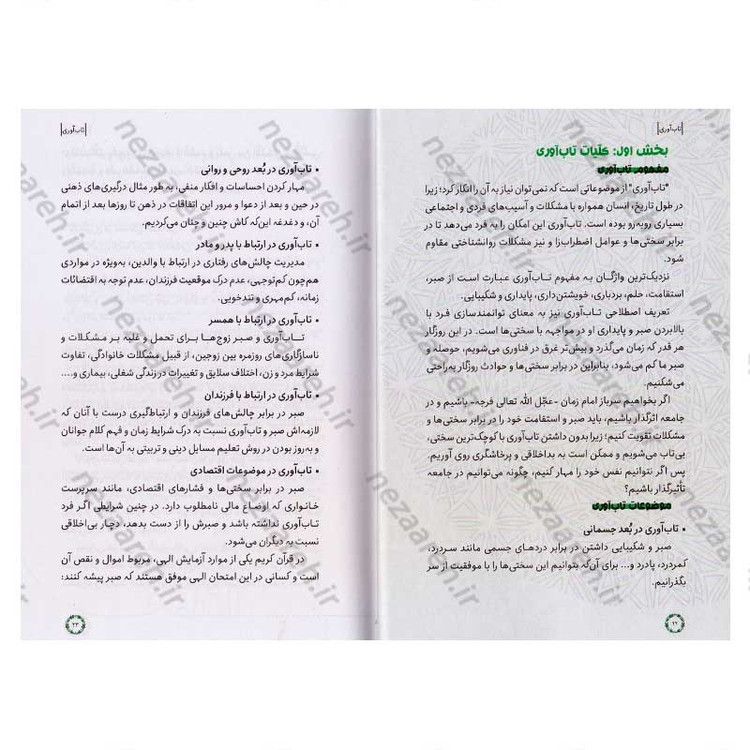 |تاب‌آوری|
بخش اول: کلیات تاب‌آوری
مفهوم تاب‌آوری
"تاب‌آوری" از موضوعاتی است که نمی‌توان نیاز به آن را انکار کرد؛ زیرا
در طول تاریخ، انسان همواره با مشکلات و آسیب‌های فردی و اجتماعی
بسیاری روبه‌رو بوده است. تاب‌آوری این امکان را به فرد می‌دهد تا در
برابر سختی‌ها و عوامل اضطراب‌زا و نیز مشکلات روانشناختی مقاوم
شود.
نزدیک‌ترین واژگان به مفهوم تاب‌آوری عبارت است از صبر،
استقامت، حلم، بردباری، خویشتن‌داری، پایداری و شکیبایی.
تعریف اصطلاحی تاب‌آوری نیز به معنای توانمندسازی فرد با
بالابردن صبر و پایداری او در مواجهه با سختی‌ها است. در این روزگار
هر قدر که زمان می‌گذرد و بیش‌تر غرق در فناوری می‌شویم، حوصله و
صبر ما کم می‌شود، بنابراین در برابر سختی‌ها و حوادث روزگار به‌راحتی
می‌شکنیم.
اگر بخواهیم سرباز امام زمان -عجّل الله تعالی فرجه- باشیم و در
جامعه اثرگذار باشیم، باید صبر و استقامت خود را در برابر سختی‌ها و
مشکلات تقویت کنیم؛ زیرا بدون داشتن تاب‌آوری با کوچک‌ترین سختی،
بی‌تاب می‌شویم و ممکن است به بداخلاقی و پرخاشگری روی آوریم.
پس اگر نتوانیم نفس خود را مهار کنیم، چگونه می‌توانیم در جامعه
تأثیرگذار باشیم؟
موضوعات تاب‌آوری
• تاب‌آوری در بُعد جسمانی
صبر و شکیبایی داشتن در برابر دردهای جسمی مانند سردرد،
کمردرد، پادرد و... برای آن‌که بتوانیم این سختی‌ها را با موفقیت از سر
بگذرانیم.
۲۲
|تاب‌آوری|
• تاب‌آوری در بُعد روحی و روانی
مهار کردن احساسات و افکار منفی، به طور مثال درگیری‌های ذهنی
در حین و بعد از دعوا و مرور این اتفاقات در ذهن تا روزها بعد از اتمام
آن، و دغدغه این‌که کاش چنین و چنان می‌کردیم.
• تاب‌آوری در ارتباط با پدر و مادر
مدیریت چالش‌های رفتاری در ارتباط با والدین، به‌ویژه در مواردی
هم‌چون کم‌توجهی، عدم درک موقعیت فرزندان، عدم توجه به اقتضائات
زمانه، کم‌مهری و تندخویی.
• تاب‌آوری در ارتباط با همسر
تاب‌آوری و صبر زوج‌ها برای تحمل و غلبه بر مشکلات و
ناسازگاری‌های روزمره بین زوجین، از قبیل مشکلات خانوادگی، تفاوت
شرایط مرد و زن، اختلاف سلایق و تغییرات در زندگی شغلی، بیماری و....
• تاب‌آوری در ارتباط با فرزندان
صبر در برابر چالش‌های فرزندان و ارتباط‌گیری درست با آنان که
لازمه‌اش صبر و تاب‌آوری نسبت به درک شرایط زمان و فهم کلام جوانان
و به‌روز بودن در روش تعلیم مسایل دینی و تربیتی به آن‌ها است.
• تاب‌آوری در موضوعات اقتصادی
صبر در برابر سختی‌ها و فشارهای اقتصادی، مانند سرپرست
خانواری که اوضاع مالی نامطلوب دارد. در چنین شرایطی اگر فرد
تاب‌آوری نداشته باشد و صبرش را از دست بدهد، دچار بی‌اخلاقی
نسبت به دیگران می‌شود.
در قرآن کریم یکی از موارد آزمایش الهی، مربوط اموال و نقص آن
است و کسانی در این امتحان الهی موفق هستند که صبر پیشه کنند:
۲۳
nezaareh.ir
nezaareh.ir
nezaareh.ir
nezaareh.ir
nezaareh.ir
nezaareh.ir